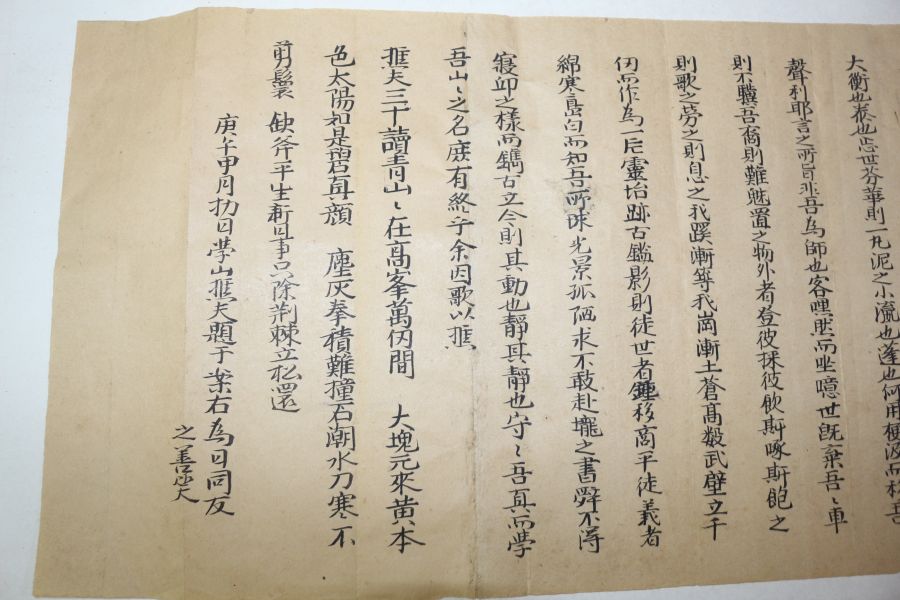 大衡也表也忘世芬華則一丸泥之小瀛也蓬也何用梗汲而移吾
聲利耶言之所旨非吾為師也客嘿然而坐噫世旣棄吾〻車
則不驥吾裔則難魃置之物外者登彼採彼飮斯啄斯飽之
則歌之勞之則息之我蹊漸等我崗漸土蒼高數武壁立千
仞而作為一片靈坮跡古鑑影則徒世者鍾移高平徒義者
綿寒島白而知吾所咏光景孤陋求不敢赴壠之書辭不得
寢卬之樣而鐫古立今則其動也靜其靜也守〻吾真而學
吾山〻之名庶有終乎余因歌以樵
樵夫三十讀靑山〻在高峯萬仞間 大塊元來黃本
色太陽如是碧眞顔 塵灰奉積難撞石潮水刀寒不
剪鬟 缺斧平生斬甚事只除荆棘立松還
庚午甲月扐日學山樵夫題于案右為日同友
之善哭